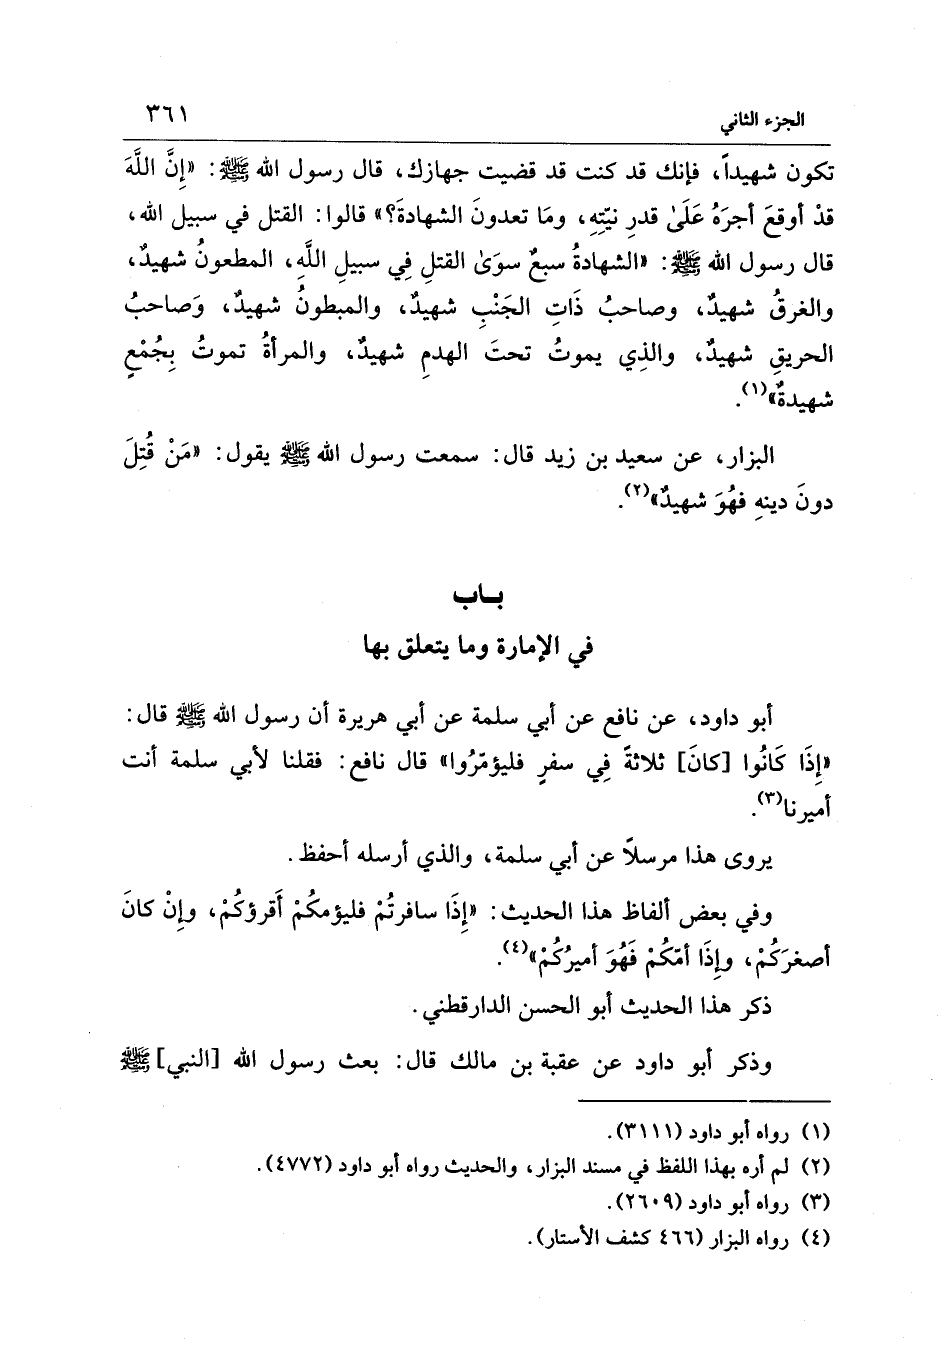 الجزء الثاني ٣٦١
تكون شهيداً، فإنك قد كنت قد قضيت جهازك، قال رسول الله ﷺ: «إِنَّ اللَّهَ
قدْ أوقعَ أجرَهُ عَلَىٰ قدرِ نيّتِهِ، ومَا تعدونَ الشهادةَ؟» قالوا: القتل في سبيل الله،
قال رسول الله ﷺ: «الشهادةُ سبعٌ سوَىٰ القتلِ فِي سبيلِ اللَّهِ، المطعونُ شهيدٌ،
والغرقُ شهيدٌ، وصاحبُ ذَاتِ الجَنْبِ شهيدٌ، والمبطونُ شهيدٌ، وَصاحبُ
الحريقِ شهيدٌ، والذِي يموتُ تحتَ الهدمِ شهيدٌ، والمرأةُ تموتُ بِجُمْعٍ
شهيدةٌ»(١).
البزار، عن سعيد بن زيد قال: سمعت رسول الله ﷺ يقول: «مَنْ قُتِلَ
دونَ دينهِ فهُوَ شهيدٌ»(٢).
بـاب
في الإمارة وما يتعلق بها
أبو داود، عن نافع عن أبي سلمة عن أبي هريرة أن رسول الله ﷺ قال:
«إِذَا كَانُوا [كانَ] ثلاثةً فِي سفرٍ فليؤمّرُوا» قال نافع: فقلنا لأبي سلمة أنت
أميرنا(٣).
يروى هذا مرسلاً عن أبي سلمة، والذي أرسله أحفظ.
وفي بعض ألفاظ هذا الحديث: «إِذَا سافرتُمْ فليؤمكُمْ أَقرؤكُمْ، وإنْ كانَ
أصغرَكُمْ، وإِذَا أمّكُمْ فَهُوَ أميرُكُمْ»(٤).
ذكر هذا الحديث أبو الحسن الدارقطني.
وذكر أبو داود عن عقبة بن مالك قال: بعث رسول الله [النبي] ﷺ
(١) رواه أبو داود (٣١١١).
(٢) لم أره بهذا اللفظ في مسند البزار، والحديث رواه أبو داود (٤٧٧٢).
(٣) رواه أبو داود (٢٦٠٩).
(٤) رواه البزار (٤٦٦ كشف الأستار).